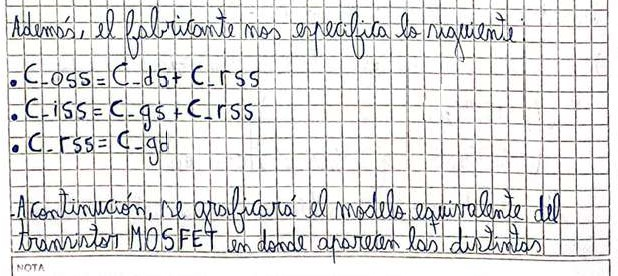 Además, el fabricante nos especifica lo siguiente:
• C_oss = C_ds + C_rss
• C_iss = C_gs + C_rss
• C_rss = C_gd
-A continución, se graficará el modelo equivalente del
transistor MOSFET en donde aparecen las distintas
NOTA